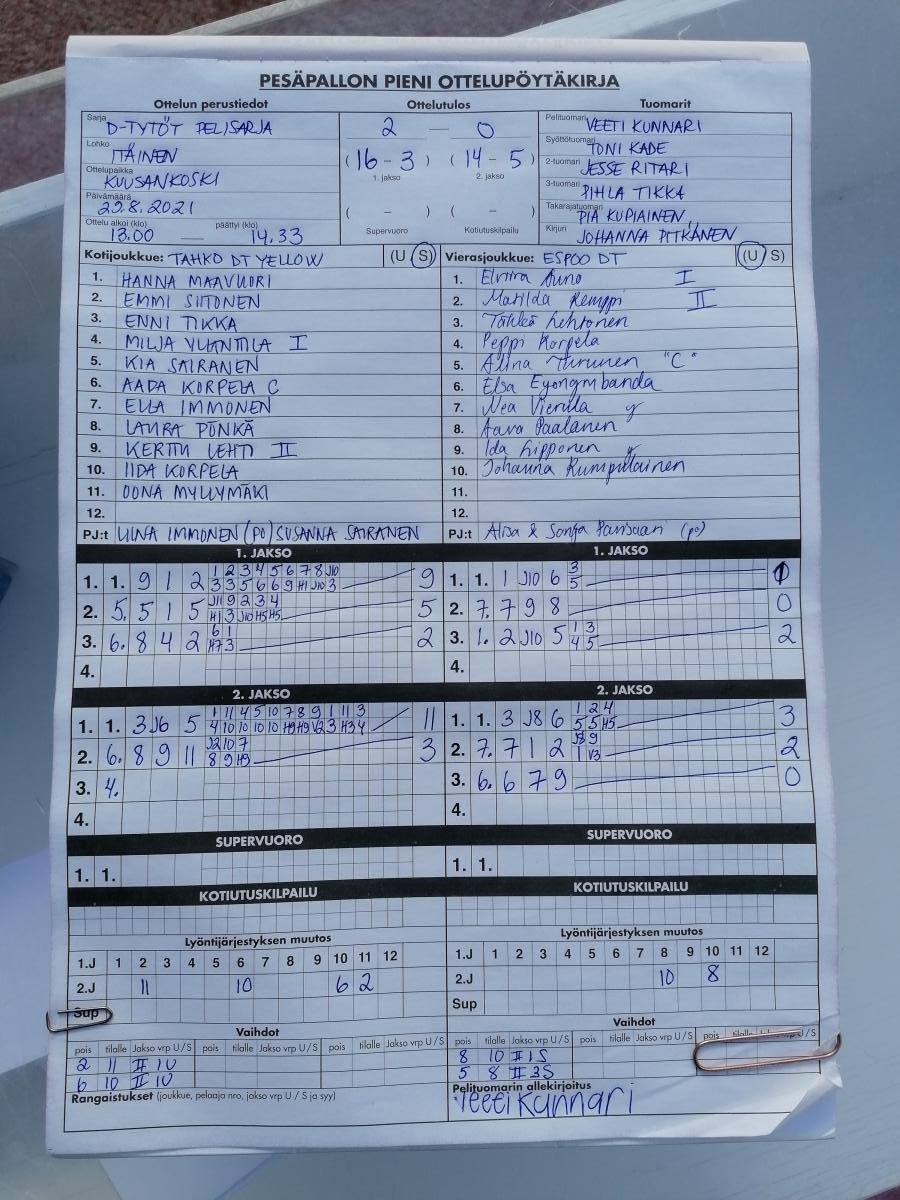 PESÄPALLON PIENI OTTELUPÖYTÄKIRJA
Ottelun perustiedot
Sarja D-TYTÖT PELISARJA
Lohko ITÄINEN
Ottelupaikka KUUSANKOSKI
Päivämäärä 29.8.2021
Ottelu alkoi (klo) päättyi (klo)
13.00 — 14.33
Ottelutulos
2 — 0
(16 - 3) (14 - 5)
1. jakso 2. jakso
( - ) ( - )
Supervuoro Kotiutuskilpailu
Tuomarit
Pelituomari VEETI KUNNARI
Syöttötuomari TONI KADE
2-tuomari JESSE RITARI
3-tuomari PIHLA TIKKA
Takarajatuomari PIA KUPIAINEN
Kirjuri JOHANNA PITKÄNEN
Kotijoukkue: TAHKO DT YELLOW (U S)
1. HANNA MAAVUORI
2. EMMI SIITONEN
3. ENNI TIKKA
4. MILJA YLÄNTTILA I
5. KIA SAIRANEN
6. AADA KORPELA C
7. ELLA IMMONEN
8. LAURA PÖNKÄ
9. KERTTU LEHTI II
10. IIDA KORPELA
11. OONA MYLLYMÄKI
12.
PJ:t LIINA IMMONEN (PO) SUSANNA SAIRANEN
Vierasjoukkue: ESPOO DT (U S)
1. Elviira Auno I
2. Matilda Kemppi II
3. Lehtonen
4. Peppi Korpela
5. Alina Turunen "C"
6. Elsa Eyongmbanda
7. Nea Vierula
8. Aava Paalanen
9. Ida Lipponen
10. Johanna Rumpulainen
11.
12.
PJ:t Alisa & Sonja (po)
1. JAKSO
1. 1. 9 1 2 1 2 3 4 5 6 7 8 J10 9
3 3 5 6 6 9 H1 J10 3
2. 5. 5 1 5 J11 9 2 3 4 5
H1 3 J10 H5 H5
3. 6. 8 4 2 6 1 2
H7 3
4.
1. JAKSO
1. 1. 1 J10 6 3 1
5
2. 7. 7 9 8 0
3. 1. 2 J10 5 1 3 2
4 5
4.
2. JAKSO
1. 1. 3 J6 5 1 11 4 5 10 7 8 9 1 11 3 11
4 10 10 10 10 H9 H9 V2 3 H3 4
2. 6. 8 9 11 J2 10 7 3
8 9 H9
3. 4.
4.
2. JAKSO
1. 1. 3 J8 6 1 2 4 3
5 5 H5
2. 7. 7 1 2 J8 9 2
1 V3
3. 6. 6 7 9 0
4.
SUPERVUORO
1. 1.
SUPERVUORO
1. 1.
KOTIUTUSKILPAILU
KOTIUTUSKILPAILU
Lyöntijärjestyksen muutos
1.J 1 2 3 4 5 6 7 8 9 10 11 12
2.J 11 10 6 2
Sup
Lyöntijärjestyksen muutos
1.J 1 2 3 4 5 6 7 8 9 10 11 12
2.J 10 8
Sup
Vaihdot
pois tilalle Jakso vrp U/S pois tilalle Jakso vrp U/S pois tilalle Jakso vrp U/S
2 11 II 1U
6 10 II 1U
Rangaistukset (joukkue, pelaaja nro, jakso vrp U / S ja syy)
Vaihdot
pois tilalle Jakso vrp U/S pois tilalle Jakso vrp U/S pois tilalle Jakso vrp U/S
8 10 II 1S
5 8 II 3S
Pelituomarin allekirjoitus
Veeti Kunnari